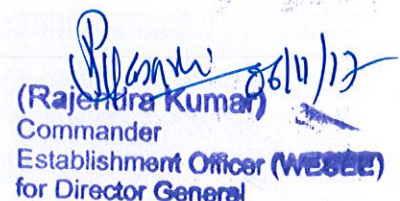 06/11/17
(Rajendra Kumar)
Commander
Establishment Officer (WESEE)
for Director General